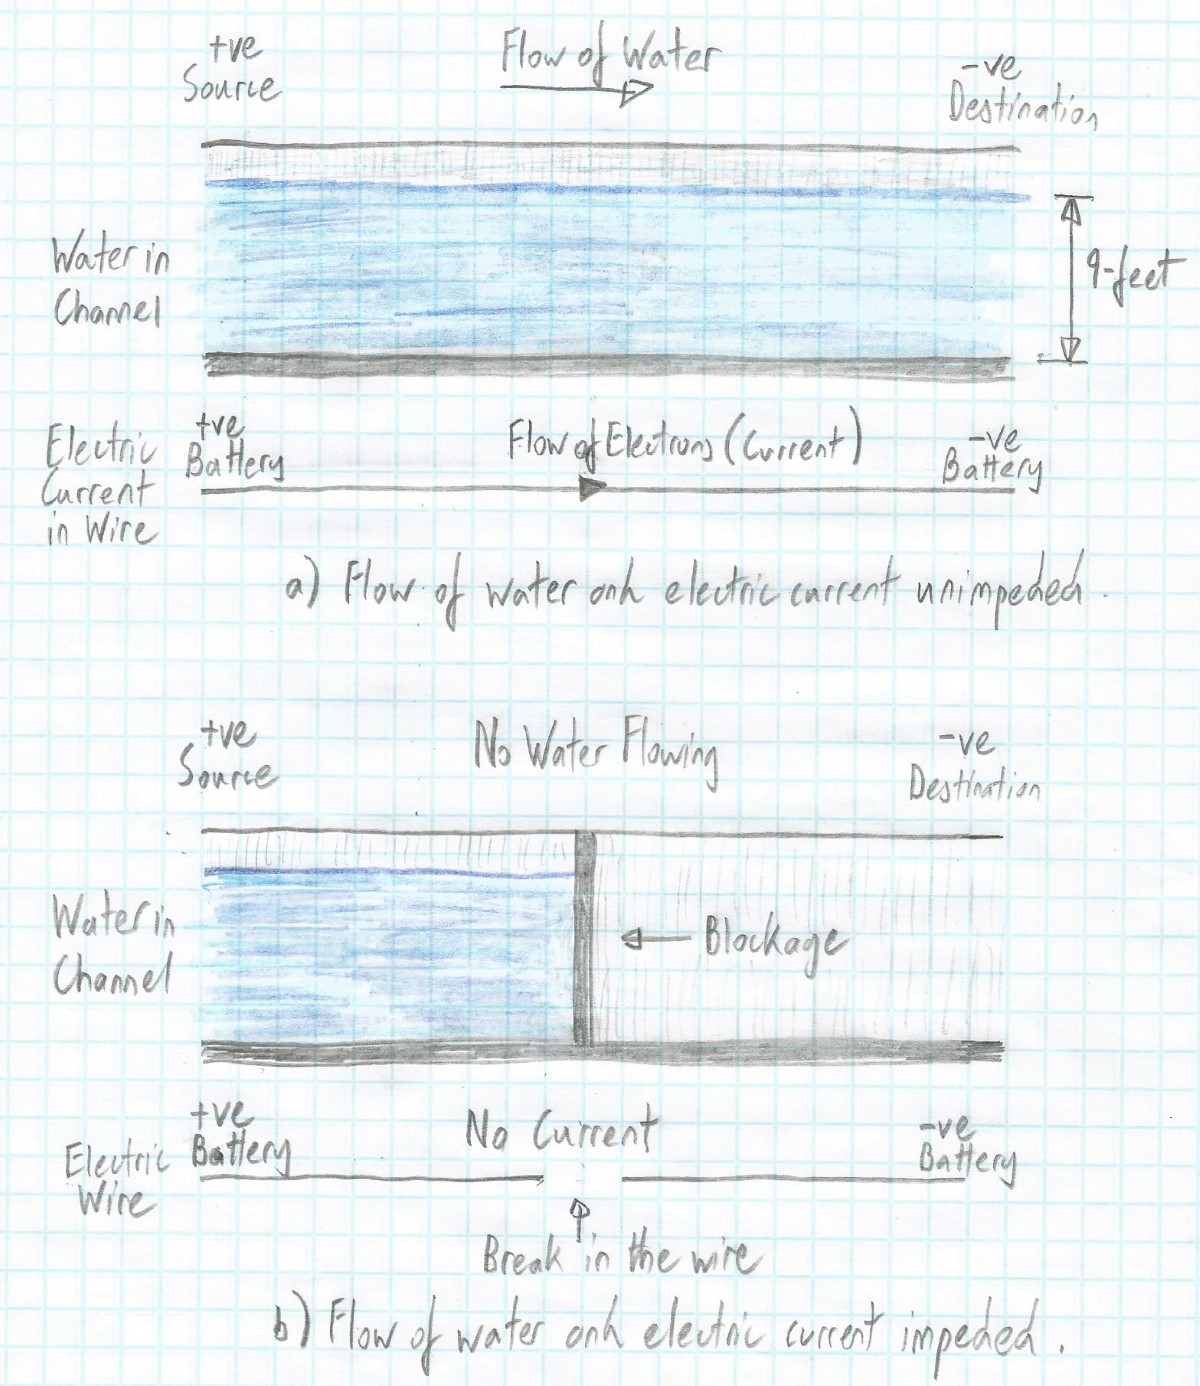 +ve
Source
Flow of Water
-ve
Destination
Water in
Channel
9-feet
Electric
Current
in Wire
+ve
Battery
Flow of Electrons (Current)
-ve
Battery
a) Flow of water and electric current unimpeded.
+ve
Source
No Water Flowing
-ve
Destination
Water in
Channel
Blockage
Electric
Wire
+ve
Battery
No Current
-ve
Battery
Break in the wire
b) Flow of water and electric current impeded.